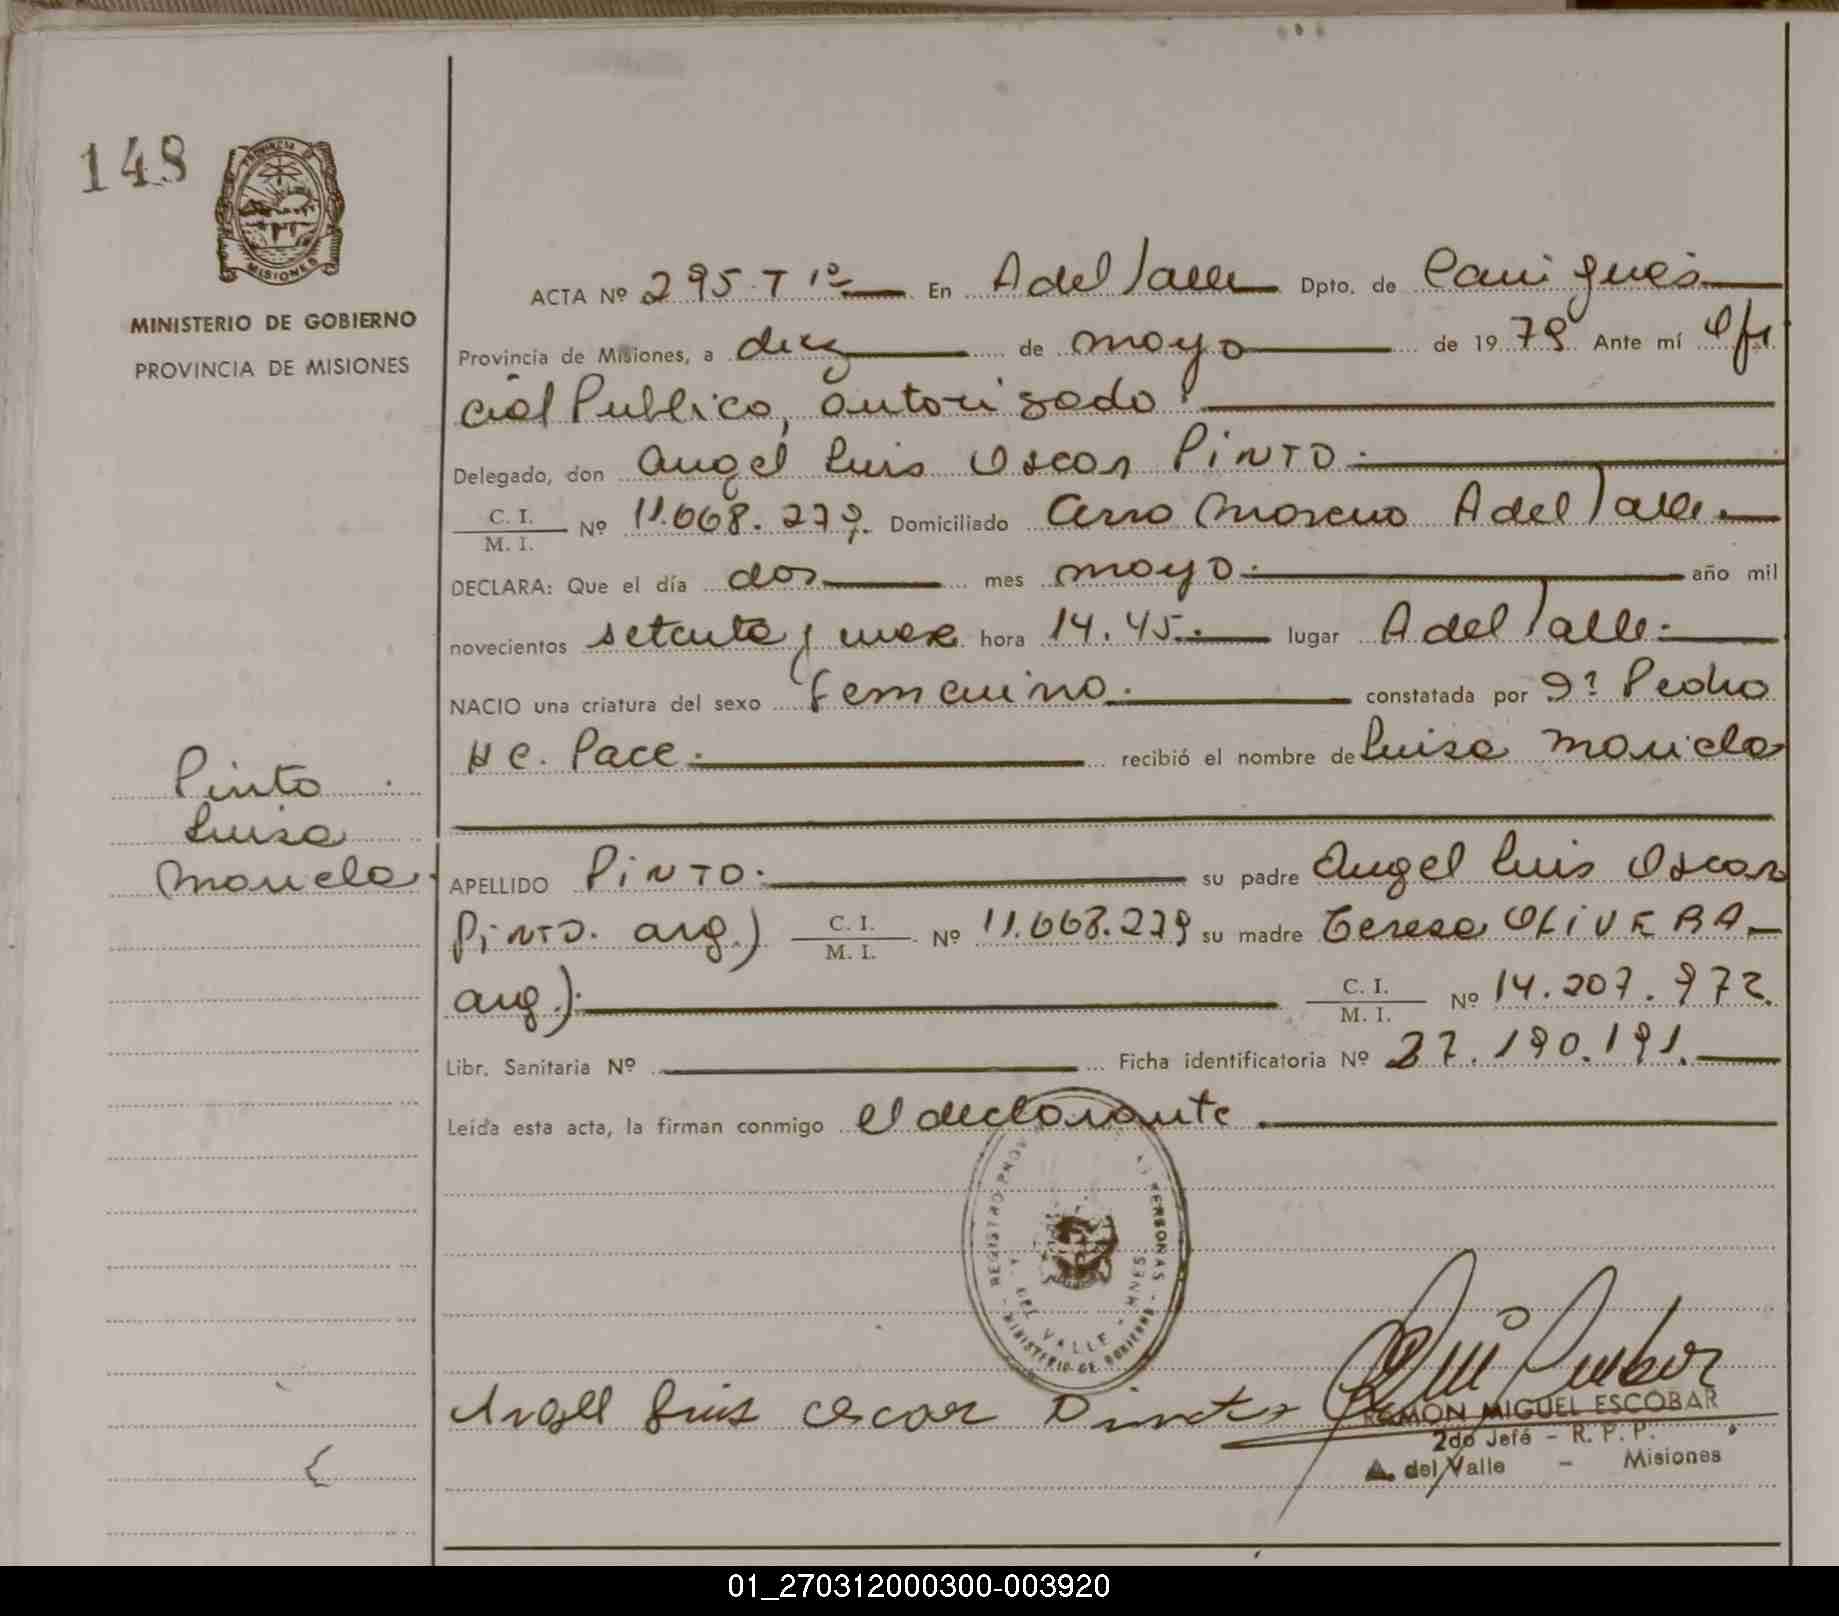 148
PROVINCIA DE
MISIONES
MINISTERIO DE GOBIERNO
PROVINCIA DE MISIONES
ACTA Nº 295-T 1º En A del Valle Dpto. de Cainguás
Provincia de Misiones, a diez de mayo de 1979 Ante mí Ofi
cial Publico, autorizado
Delegado, don Angel Luis Oscar PINTO.
C. I.
M. I. Nº 11.668.279. Domiciliado Cerro Moreno A del Valle.
DECLARA: Que el día dos mes mayo. año mil
novecientos setenta y nueve hora 14.45. lugar A del Valle.
NACIO una criatura del sexo femenino. constatada por Dr. Pedro
H C. Pace. recibió el nombre de Luisa Mariela
Pinto
Luisa
Mariela.
APELLIDO PINTO. su padre Angel Luis Oscar
PINTO. arg.) C. I.
M. I. Nº 11.668.279 su madre Teresa OLIVERA
arg.). C. I.
M. I. Nº 14.207.972.
Libr. Sanitaria Nº Ficha identificatoria Nº 27.190.191.
Leída esta acta, la firman conmigo el declarante.
REGISTRO PERSONAS
DEL VALLE - MNES
MINISTERIO DE GOBIERNO
Angel Luis Oscar Pinto
RAMON MIGUEL ESCOBAR
2do Jefe - R. P. P.
A. del Valle - Misiones
01_270312000300-003920